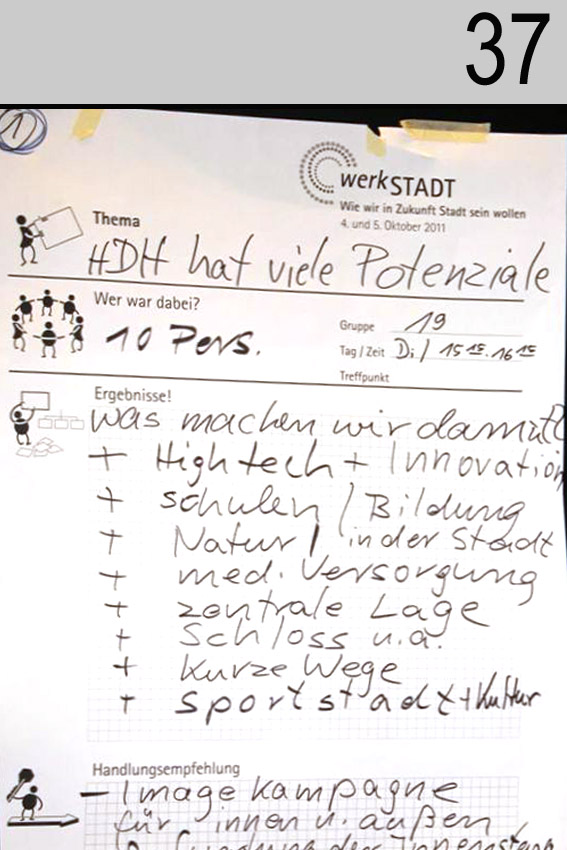 37
1
werkSTADT
Wie wir in Zukunft Stadt sein wollen
4. und 5. Oktober 2011
Thema
HDH hat viele Potenziale
Wer war dabei?
10 Pers.
Gruppe 19
Tag / Zeit Di / 15 15 - 16 15
Treffpunkt
Ergebnisse!
was machen wir damit?
+ Hightech + Innovation
+ schulen / Bildung
+ Natur / in der Stadt
+ med. Versorgung
+ zentrale Lage
+ Schloss u.a.
+ kurze Wege
+ sportstadt + Kultur
Handlungsempfehlung
- Image kampagne
für innen u. außen
der Innenstadt